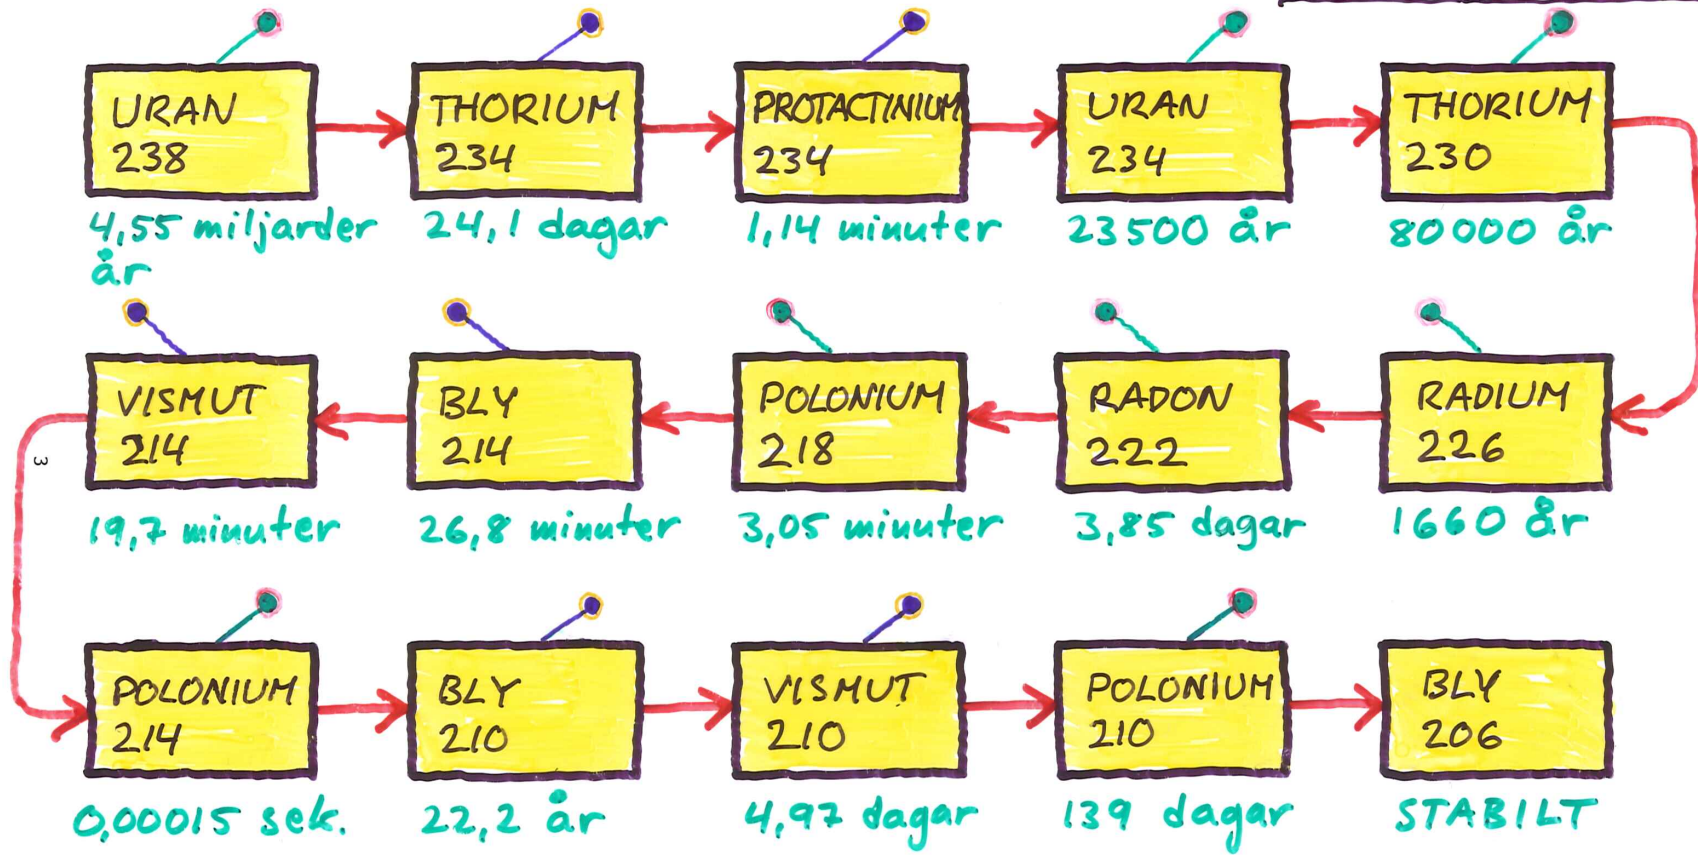 URAN
238
4,55 miljarder
år
THORIUM
234
24,1 dagar
PROTACTINIUM
234
1,14 minuter
URAN
234
23500 år
THORIUM
230
80000 år
RADIUM
226
1660 år
RADON
222
3,85 dagar
POLONIUM
218
3,05 minuter
BLY
214
26,8 minuter
VISMUT
214
19,7 minuter
3
POLONIUM
214
0,00015 sek.
BLY
210
22,2 år
VISMUT
210
4,97 dagar
POLONIUM
210
139 dagar
BLY
206
STABILT